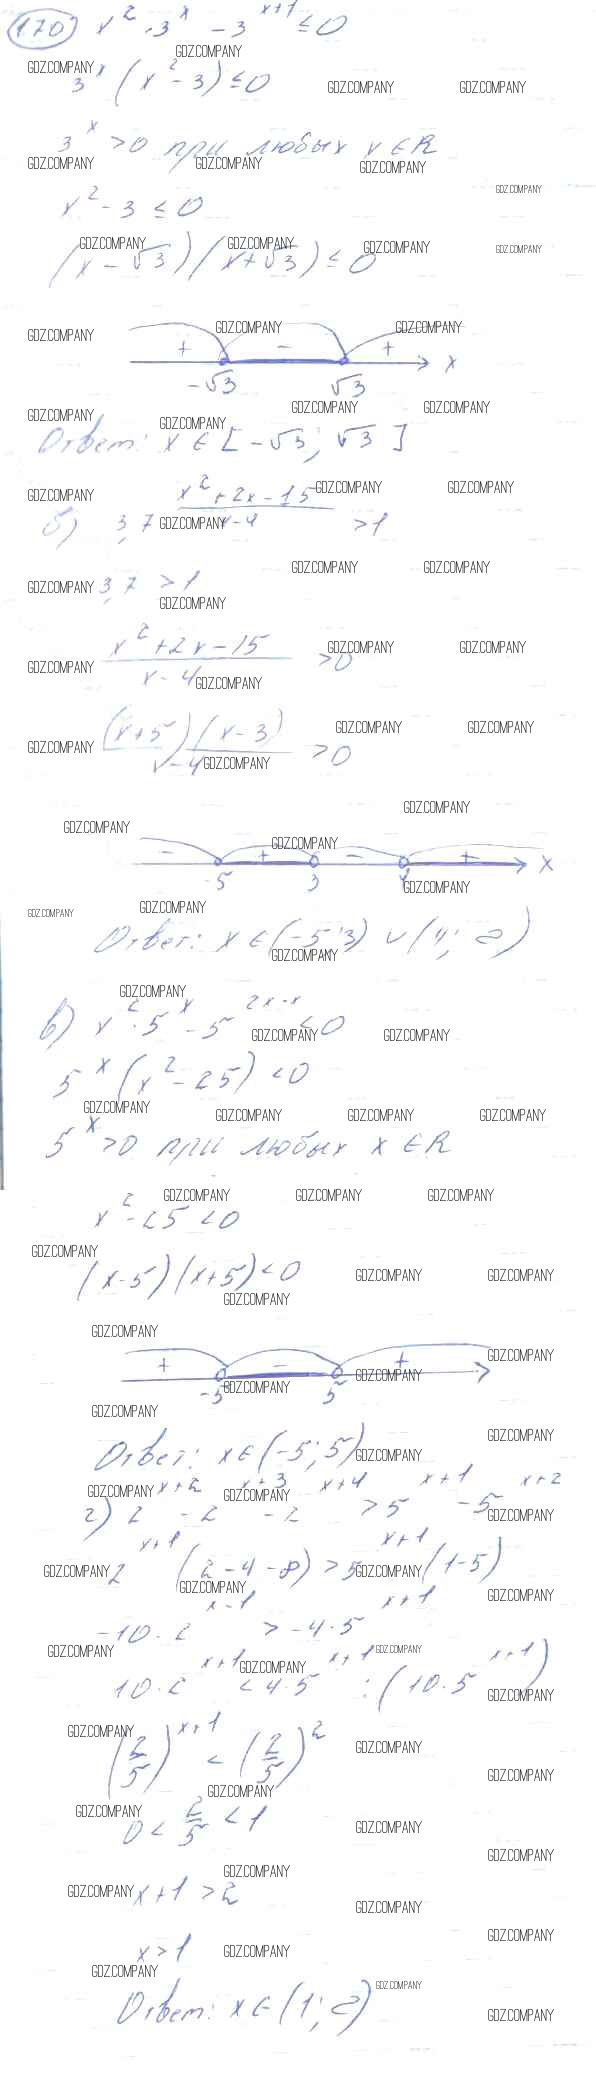 170) x² · 3ˣ − 3ˣ⁺¹ ≤ 0
3ˣ (x² − 3) ≤ 0
3ˣ > 0 при любых x ∈ R
x² − 3 ≤ 0
(x − √3)(x + √3) ≤ 0
+ − + x
−√3 √3
Ответ: x ∈ [−√3; √3]
б) 3,7^((x² + 2x − 15)/(x − 4)) > 1
3,7 > 1
(x² + 2x − 15)/(x − 4) > 0
(x + 5)(x − 3)/(x − 4) > 0
− + − + x
−5 3 4
Ответ: x ∈ (−5; 3) ∪ (4; ∞)
в) x² · 5ˣ − 5 < 0
5ˣ (x² − 25) < 0
5ˣ > 0 при любых x ∈ R
x² − 25 < 0
(x − 5)(x + 5) < 0
+ − +
−5 5
Ответ: x ∈ (−5; 5)
г) 2ˣ⁺² − 2ˣ⁺³ − 2ˣ⁺⁴ > 5ˣ⁺¹ − 5ˣ⁺²
2ˣ⁺¹ (2 − 4 − 8) > 5ˣ⁺¹ (1 − 5)
−10 · 2ˣ⁻¹ > −4 · 5ˣ⁺¹
10 · 2ˣ⁺¹ < 4 · 5ˣ⁺¹ : (10 · 5ˣ⁺¹)
(2/5)ˣ⁺¹ < (2/5)²
0 < 2/5 < 1
x + 1 > 2
x > 1
Ответ: x ∈ (1; ∞)
GDZ.COMPANY